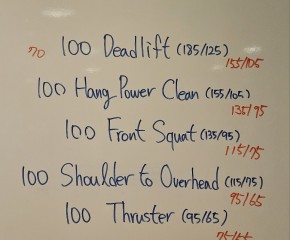 70 100 Deadlift (185/125)
155/105
100 Hang Power Clean (155/105)
135/95
100 Front Squat (135/95)
115/75
100 Shoulder to Overhead (115/75)
95/65
100 Thruster (95/65)
75/55